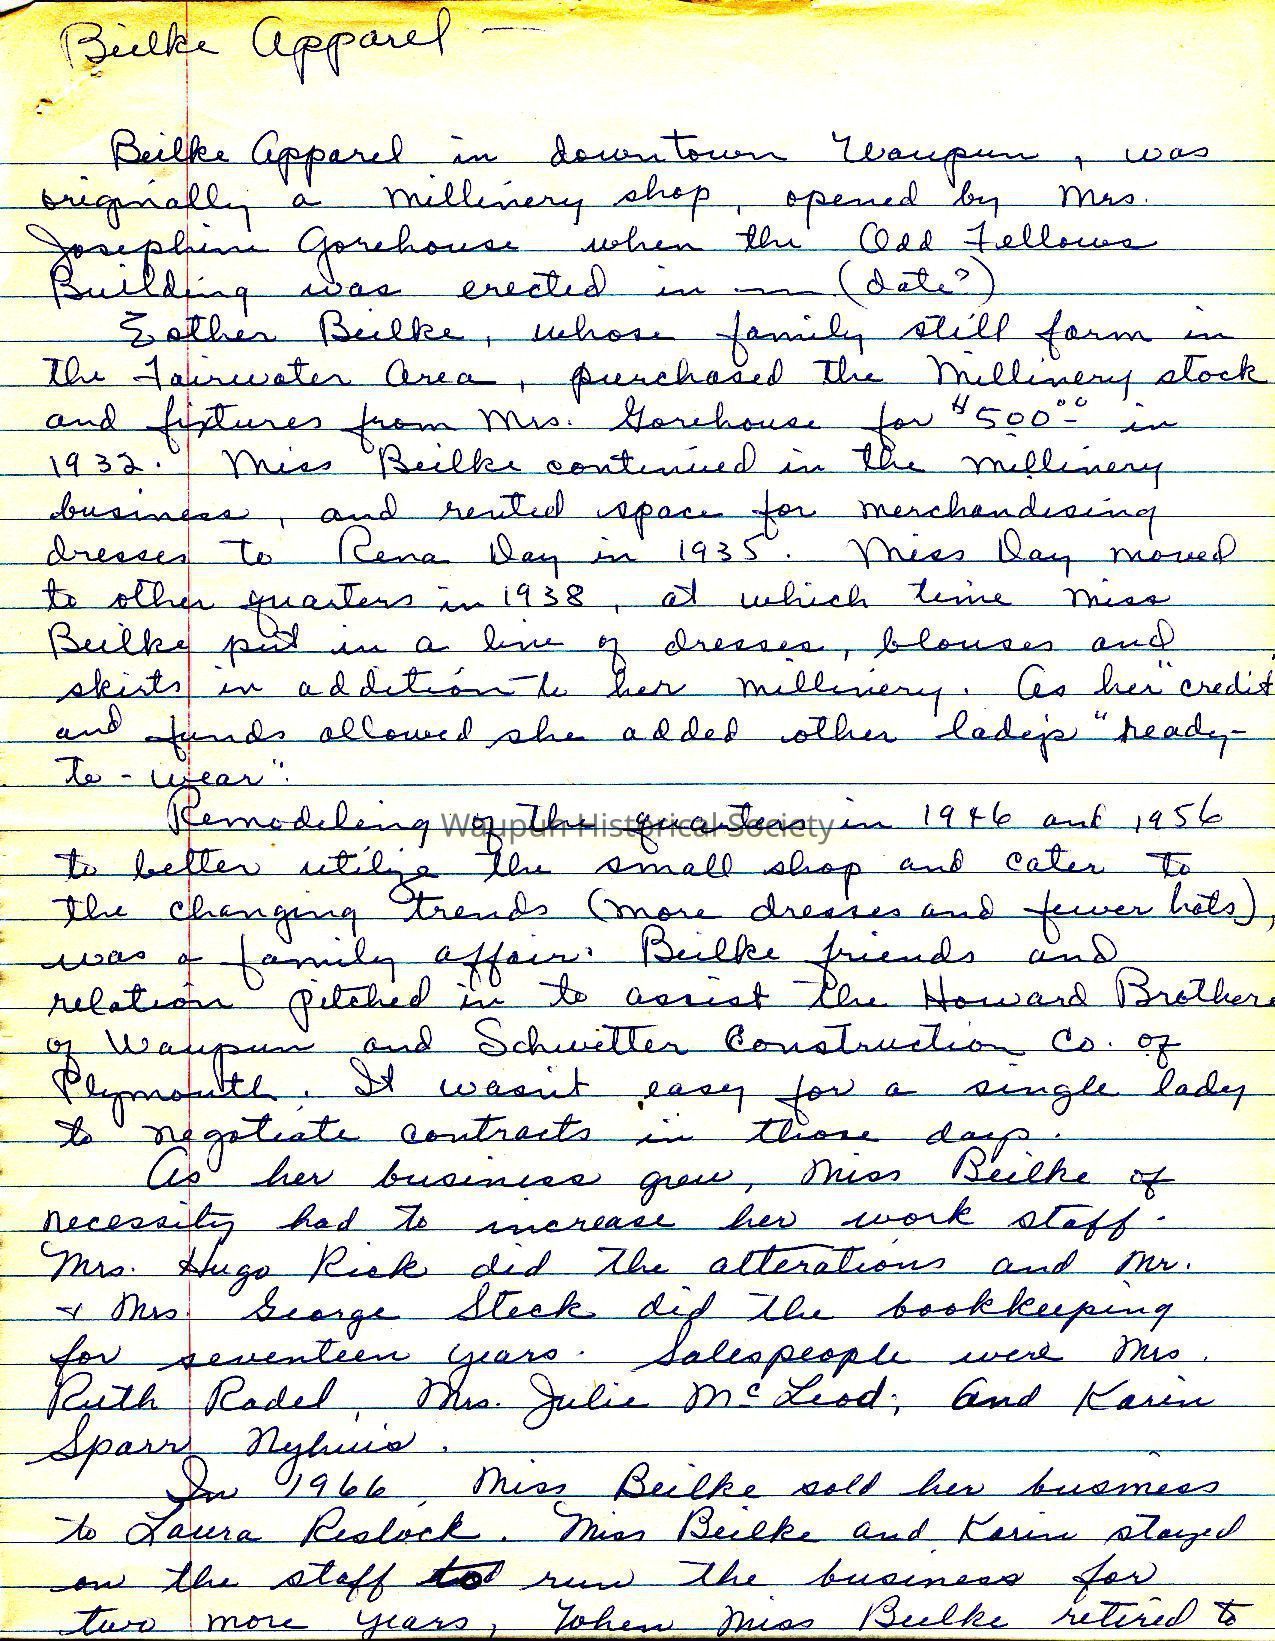 Beilke Apparel —
Beilke Apparel in downtown Waupun, was
originally a millinery shop, opened by Mrs.
Josephine Gorehouse when the Odd Fellows
Building was erected in — (date?)
Esther Beilke, whose family still farm in
the Fairwater Area, purchased the Millinery stock
and fixtures from Mrs. Gorehouse for $500.00 in
1932. Miss Beilke continued in the millinery
business, and rented space for merchandising
dresses to Rena Day in 1935. Miss Day moved
to other quarters in 1938, at which time Miss
Beilke put in a line of dresses, blouses and
skirts in addition to her millinery. As her "credit
and funds allowed she added other ladies "ready-
to-wear".
Remodeling of the quarters in 1946 and 1956
Waupun Historical Society
to better utilize the small shop and cater to
the changing trends (more dresses and fewer hats),
was a family affair. Beilke friends and
relation pitched in to assist the Howard Brothers
of Waupun and Schwitter Construction Co. of
Plymouth. It wasn't easy for a single lady
to negotiate contracts in those days.
As her business grew, Miss Beilke of
necessity had to increase her work staff.
Mrs. Hugo Rick did the alterations and Mr.
& Mrs. George Steck did the bookkeeping
for seventeen years. Salespeople were Mrs.
Ruth Radel, Mrs. Julie McLeod, and Karin
Sparr Nyhuis.
In 1966, Miss Beilke sold her business
to Laura Reslock. Miss Beilke and Karin stayed
on the staff to run the business for
two more years, when Miss Beilke retired to